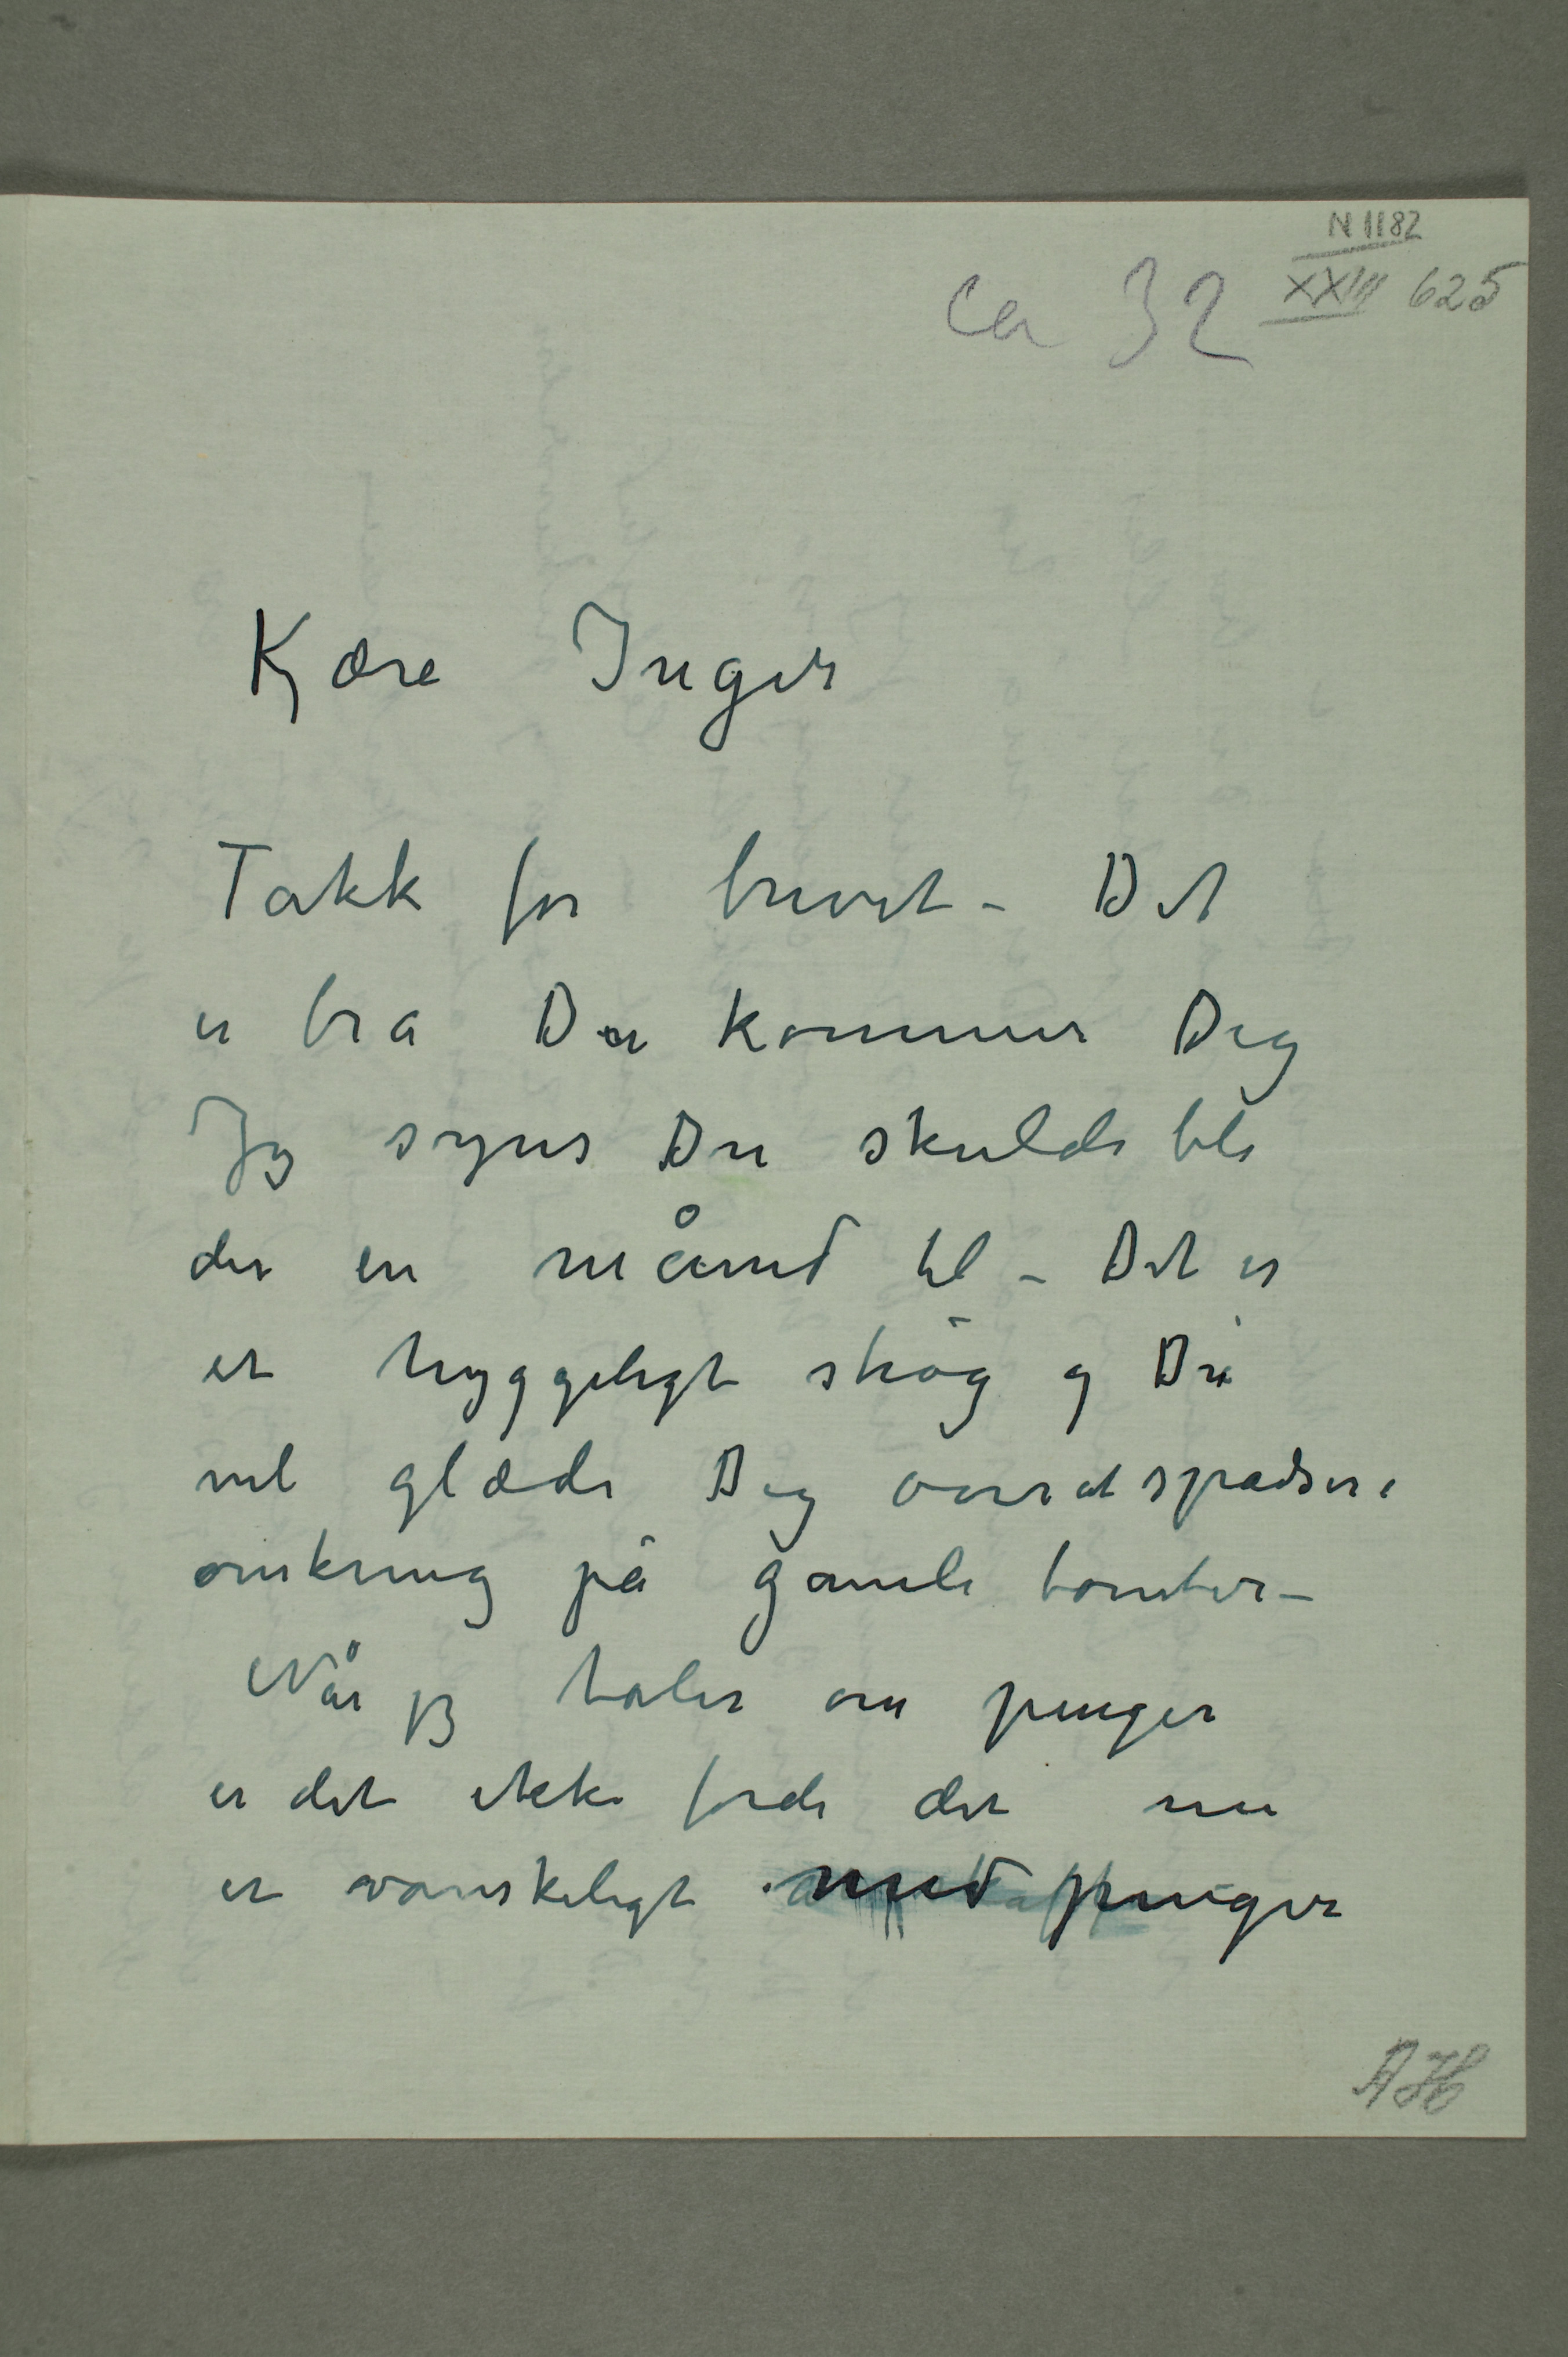 N 1182
XXIII 625
ca 32
Kjære Inger
Takk for brevet – Det
er bra Du kommer Dig
Jeg synes Du skulde bli
der en måned til – Det er
et hyggeligt strøg og Du
vil glæde Dig over at spadsere
omkring på gamle tomter –
Når jeg taler om penger
er det ikke fordi det nu
er vanskeligt med penger
AH